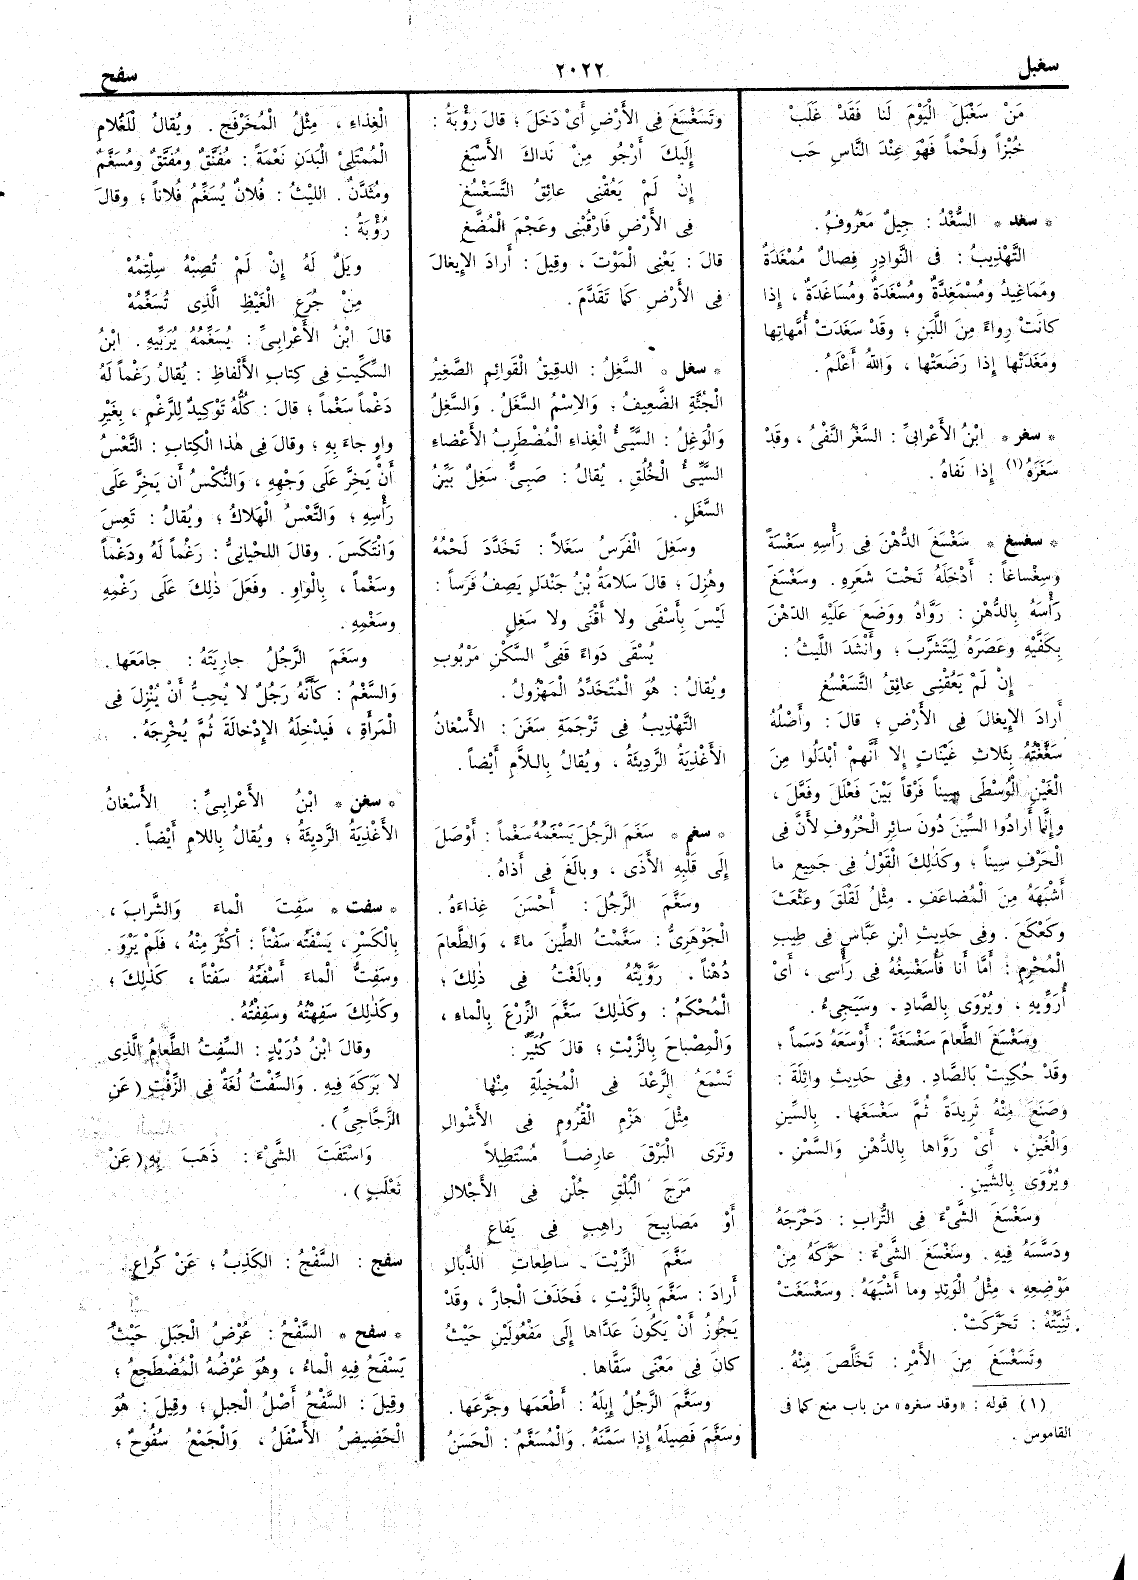 سغبل
٢٠٢٢
سفح
مَنْ سَغْبَلَ الْيَوْمَ لَنَا فَقَدْ غَلَبْ
خُبْزاً ولَحْماً فَهْوَ عِنْدَ النَّاسِ حَب
* سغد * السُّغْدُ : جِيلٌ مَعْرُوفٌ .
التَّهْذِيبُ : فى النَّوادِرِ فِصالٌ مُمْغَدَةٌ
ومَمَاغِيدُ ومُسْمَغِدَّةٌ ومُسْغَدَةٌ ومُسَاغَدَةٌ ، إِذا
كانَتْ رِواءً مِنَ اللَّبَنِ ؛ وقَدْ سَغَدَتْ أُمَّهاتِها
ومَغَدَتْها إِذا رَضَعَتْها ، وَاللهُ أَعْلَمُ .
* سغر * ابْنُ الأَعْرابِىِّ : السَّغْرُ النَّفْىُ ، وقَدْ
سَغَرَهُ (١) إِذا نَفاهُ .
* سغسغ * سَغْسَغَ الدُّهْنَ فِى رَأْسِهِ سَغْسَةً
وسِغْساغاً : أَدْخَلَهُ تَحْتَ شَعَرِهِ . وسَغْسَغَ
رَأْسَهُ بِالدُّهْنِ : رَوَّاهُ ووَضَعَ عَلَيْهِ الدّهْنَ
بِكَفَّيْهِ وعَصَرَهُ لِيَتَشَرَّبَ ؛ وأَنْشَدَ اللَّيثُ :
إِنْ لَمْ يَعُقْنِى عائِقُ التَّسَغْسُغِ
أَرادَ الإِيغالَ فِى الأَرْضِ ؛ قالَ : وأَصْلُهُ
سَغَّغْتُهُ بِثَلاثِ غَيْنَاتٍ إِلا أَنَّهمْ أَبْدَلُوا مِنَ
الْغَيْنِ الْوُسْطَى سِيناً فَرْقاً بَيْنَ فَعْلَلَ وفَعَّلَ ،
وإِنَّما أَرادُوا السِّينَ دُونَ سائِرِ الْحُرُوفِ لأَنَّ فِى
الْحَرْفِ سِيناً ؛ وكَذلِكَ الْقَوْلُ فِى جَمِيعِ ما
أَشْبَهَهُ مِنَ الْمُضاعَفِ . مِثْلُ لَقْلَقَ وعَثْعَثَ
وكَعْكَعَ . وفِى حَدِيثِ ابْنِ عَبَّاسٍ فِى طِيبِ
الْمُحْرِمِ : أَمَّا أَنا فَأُسَغْسِغُهُ فِى رَأْسِى ، أَىْ
أُرَوِّيهِ ، ويُرْوَى بِالصَّادِ . وسَيَجِىءُ .
وسَغْسَغَ الطَّعامَ سَغْسَغَةً : أَوْسَعَهُ دَسَماً ؛
وقَدْ حُكِيَتْ بَالصَّادِ . وفِى حَدِيثِ واثِلَةَ :
وصَنَعَ مِنْهُ ثَرِيدَةً ثُمَّ سَغْسَغَها . بِالسِّينِ
وَالْغَيْنِ ، أَىْ رَوَّاها بِالدُّهْنِ وَالسَّمْنِ .
ويُرْوَى بِالشِّينِ .
وسَغْسَغَ الشَّىْءَ فِى التُّرابِ : دَحْرَجَهُ
ودَسَّسَهُ فِيهِ . وسَغْسَغَ الشَّىْءَ : حَرَّكَهُ مِنْ
مَوْضِعِهِ ، مِثْلُ الْوَتِدِ وما أَشْبَهَهُ . وسَغْسَغَتْ
ثَنِيَّتُهُ : تَحَرَّكَتْ .
وتَسَغْسَغَ مِنَ الأَمْرِ : تَخَلَّصَ مِنْهُ .
(١) قوله : «وقد سغره» من باب منع كما فى
القاموس .
وتَسَغْسَغَ فِى الأَرْضِ أَىْ دَخَلَ ؛ قالَ رُؤْبَةُ :
إِلَيكَ أَرْجُو مِنْ نَداكَ الأَسْبَغِ
إِنْ لَمْ يَعُقْنِى عائِقُ التَّسَغْسُغِ
فِى الأَرْضِ فَارْقُبْنِى وعَجْمَ الْمُضَّغِ
قالَ : يَعْنِى الْمَوْتَ ، وقِيلَ : أَرادَ الإِيغالَ
فِى الأَرْضِ كَمَا تَقَدَّمَ .
* سغل * السَّغِلُ : الدقِيقُ الْقَوائِمِ الصَّغِيرُ
الْجُثَّةِ الضَّعِيفُ ؛ وَالاِسْمُ السَّغَلُ . وَالسَّغِلُ
وَالْوَغِلُ : السَّيِّئُ الْغِذاءِ الْمُضْطَرِبُ الأَعْضاءِ
السَّيِّئُ الْخُلُقِ . يُقالُ : صَبِىٌّ سَغِلٌ بَيِّنُ
السَّغَلِ .
وسَغِلَ الْفَرَسُ سَغَلاً : تَخَدَّدَ لَحْمُهُ
وهُزِلَ ؛ قالَ سَلامَةُ بْنُ جَنْدَلٍ يَصِفُ فَرَساً :
لَيْسَ بِأَسْفَى ولا أَقْنَى ولا سَغِلٍ
يُسْقَى دَواءَ قَفِىِّ السَّكْنِ مَرْبُوبِ
ويُقالُ : هُوَ الْمُتَخَدِّدُ الْمَهْزُولُ .
التَّهْذِيبُ فِى تَرْجَمَةِ سَغَنَ : الأَسْغانُ
الأَغْذِيَةُ الرَّدِيئَةُ ، ويُقالُ بِاللاَّمِ أَيْضاً .
* سغم * سَغَمَ الرَّجُلَ يَسْغَمُهُ سَغْماً : أَوْصَلَ
إِلَى قَلْبِهِ الأَذَى ، وبالَغَ فِى أَذاهُ .
وسَغَّمَ الرَّجُلَ : أَحْسَنَ غِذاءَهُ .
الْجَوْهَرِىُّ : سَغَّمْتُ الطِّينَ ماءً ، وَالطَّعامَ
دُهْناً . رَوَّيْتُهُ وبالَغْتُ فِى ذلِكَ ؛
الْمُحْكَمُ : وكَذلِكَ سَغَّمَ الزَّرْعَ بِالْماءِ ،
وَالْمِصْباحَ بِالزَّيْتِ ؛ قالَ كُثَيِّرٌ :
تَسْمَعُ الرَّعْدَ فِى الْمُخِيلَةِ مِنْها
مِثْلَ هَزْمِ الْقُرُومِ فِى الأَشْوالِ
وتَرَى الْبَرْقَ عارِضاً مُسْتَطِيلاً
مَرَحَ الْبُلْقِ جُلْنَ فِى الأَجْلالِ
أَوْ مَصابِيحَ راهِبٍ فِى يَفاعٍ
سَغَّمَ الزَّيْتَ ساطِعاتِ الذُّبالِ
أَرادَ : سَغَّمَ بِالزَّيْتِ ، فَحَذَفَ الْجارَّ ، وقَدْ
يَجُوزُ أَنْ يَكُونَ عَدَّاها إِلَى مَفْعُولَيْنِ حَيْثُ
كانَ فِى مَعْنَى سَقَّاها .
وسَغَّمَ الرَّجُلُ إِبِلَهُ : أَطْعَمَها وجَرَّعَها .
وسَغَّمَ فَصِيلَهُ إِذا سَمَّنَهُ . وَالْمُسَغَّمُ : الْحَسَنُ
الْغِذاءِ ، مِثْلُ الْمُخَرْفَجِ . ويُقالُ لِلْغُلامِ
الْمُمْتَلِئِ الْبَدَنِ نَعْمَةً : مُفَنَّقٌ ومُفَتَّقٌ ومُسَغَّمٌ
ومُثَدَّنٌ . الليْثُ : فُلانٌ يُسَغِّمُ فُلاناً ؛ وقالَ
رُؤْبَةُ :
وَيْلٌ لَهُ إِنْ لَمْ تُصِبْهُ سِلْتِمُهْ
مِنْ جُرَعِ الْغَيْظِ الَّذِى تُسَغِّمُهْ
قالَ ابْنُ الأَعْرابِىِّ : يُسَغِّمُهُ يُرَبِّيهِ . ابْنُ
السِّكِّيتِ فِى كِتابِ الأَلْفاظِ : يُقالُ رَغْماً لَهُ
دَغْماً سَغْماً ؛ قالَ : كُلُّهُ تَوْكِيدٌ لِلرَّغْمِ ، بِغَيْرِ
واوٍ جاءَ بِهِ ؛ وقالَ فِى هٰذا الْكِتابِ : التَّعْسُ
أَنْ يَخِرَّ عَلَى وَجْهِهِ ، وَالنُّكْسُ أَن يَخِرَّ عَلَى
رَأْسِهِ ؛ وَالتَّعْسُ الْهَلاكُ ؛ ويُقالُ : تَعِسَ
وَانْتَكَسَ . وقالَ اللحْيانِىُّ : رَغْماً لَهُ ودَغْماً
وسَغْماً ، بِالْواوِ . وفَعَلَ ذلِكَ عَلَى رَغْمِهِ
وسَغْمِهِ .
وسَغَمَ الرَّجُلُ جارِيَتَهُ : جامَعَها .
وَالسَّغْمُ : كَأَنَّهُ رَجُلٌ لا يُحِبُّ أَنْ يُنْزِلَ فِى
الْمَرأَةِ ، فَيدْخِلَهُ الإِدْخالَةَ ثُمَّ يُخْرِجَهُ .
* سغن * ابْنُ الأَعْرابِىِّ : الأَسْغانُ
الأَغْذِيَةُ الرَّدِيئَةُ ؛ ويُقالُ بِاللامِ أَيْضاً .
* سفت * سَفِتَ الْماءَ وَالشَّرابَ ،
بِالْكَسْرِ ، يَسْفَتُه سَفْتاً : أَكْثَرَ مِنْهُ ، فَلَمْ يَرْوَ .
وسَفِتُّ الْماءَ أَسْفَتُهُ سَفْتاً ، كَذلِكَ ؛
وكَذلِكَ سَفِهْتُهُ وسَفِفْتُهُ .
وقالَ ابْنُ دُرَيْدٍ : السِّفِتُ الطَّعامُ الَّذِى
لا بَرَكَةَ فِيهِ . وَالسِّفْتُ لُغَةٌ فِى الزِّفْتِ (عَنِ
الزَّجَّاجِىِّ ) .
وَاسْتَفَتَ الشَّىْءَ : ذَهَبَ بِهِ (عَنْ
ثَعْلَبٍ ) .
سفج : السَّفْجُ : الكَذِبُ ؛ عَنْ كُراعٍ .
* سفح * السَّفْحُ : عُرْضُ الْجَبَلِ حَيْثُ
يَسْفَحُ فِيهِ الْماءُ ، وهُوَ عُرْضُهُ الْمُضْطَجِعُ ؛
وقِيلَ : السَّفْحُ أَصْلُ الْجبلِ ؛ وقِيلَ : هُوَ
الْحَضِيضُ الأَسْفَلُ ، وَالْجَمْعُ سُفُوحٌ ؛